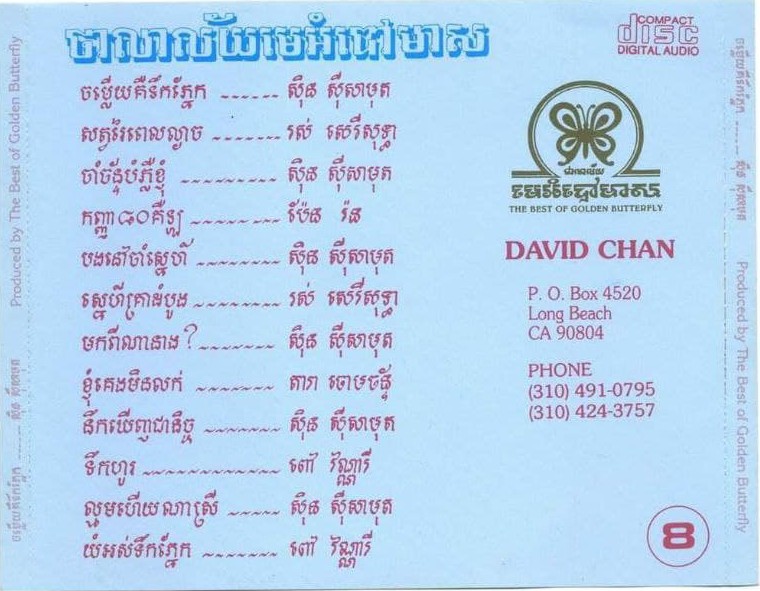 ចម្លើយគឺទឹកភ្នែក ------- ស៊ិន ស៊ីសាមុត
សត្វរៃពេលល្ងាច -------- រស់ សេរីសុទ្ធា
ចាំច័ន្ទបំភ្លឺខ្ញុំ --------- ស៊ិន ស៊ីសាមុត
កញ្ញា៨០គីឡូ --------- ប៉ែន រ៉ន
បងនៅចាំស្នេហ៍ -------- ស៊ិន ស៊ីសាមុត
ស្នេហ៍គ្រាដំបូង --------- រស់ សេរីសុទ្ធា
មកពីណានាង? -------- ស៊ិន ស៊ីសាមុត
ខ្ញុំគេងមិនលក់ -------- តារា ចោមច័ន្ទ
នឹកឃើញជានិច្ច -------- ស៊ិន ស៊ីសាមុត
ទឹកហូរ ------------- ពៅ វណ្ណារី
ល្មមហើយណាស្រី ----- ស៊ិន ស៊ីសាមុត
យំអស់ទឹកភ្នែក -------- ពៅ វណ្ណារី
COMPACT
disc
DIGITAL AUDIO
មេអំបៅមាស
THE BEST OF GOLDEN BUTTERFLY
DAVID CHAN
P. O. Box 4520
Long Beach
CA 90804
PHONE
(310) 491-0795
(310) 424-3757
8
Produced by The Best of Golden Butterfly
ចម្លើយគឺទឹកភ្នែក ------ ស៊ិន ស៊ីសាមុត
ចម្លើយគឺទឹកភ្នែក ------ ស៊ិន ស៊ីសាមុត
Produced by The Best of Golden Butterfly